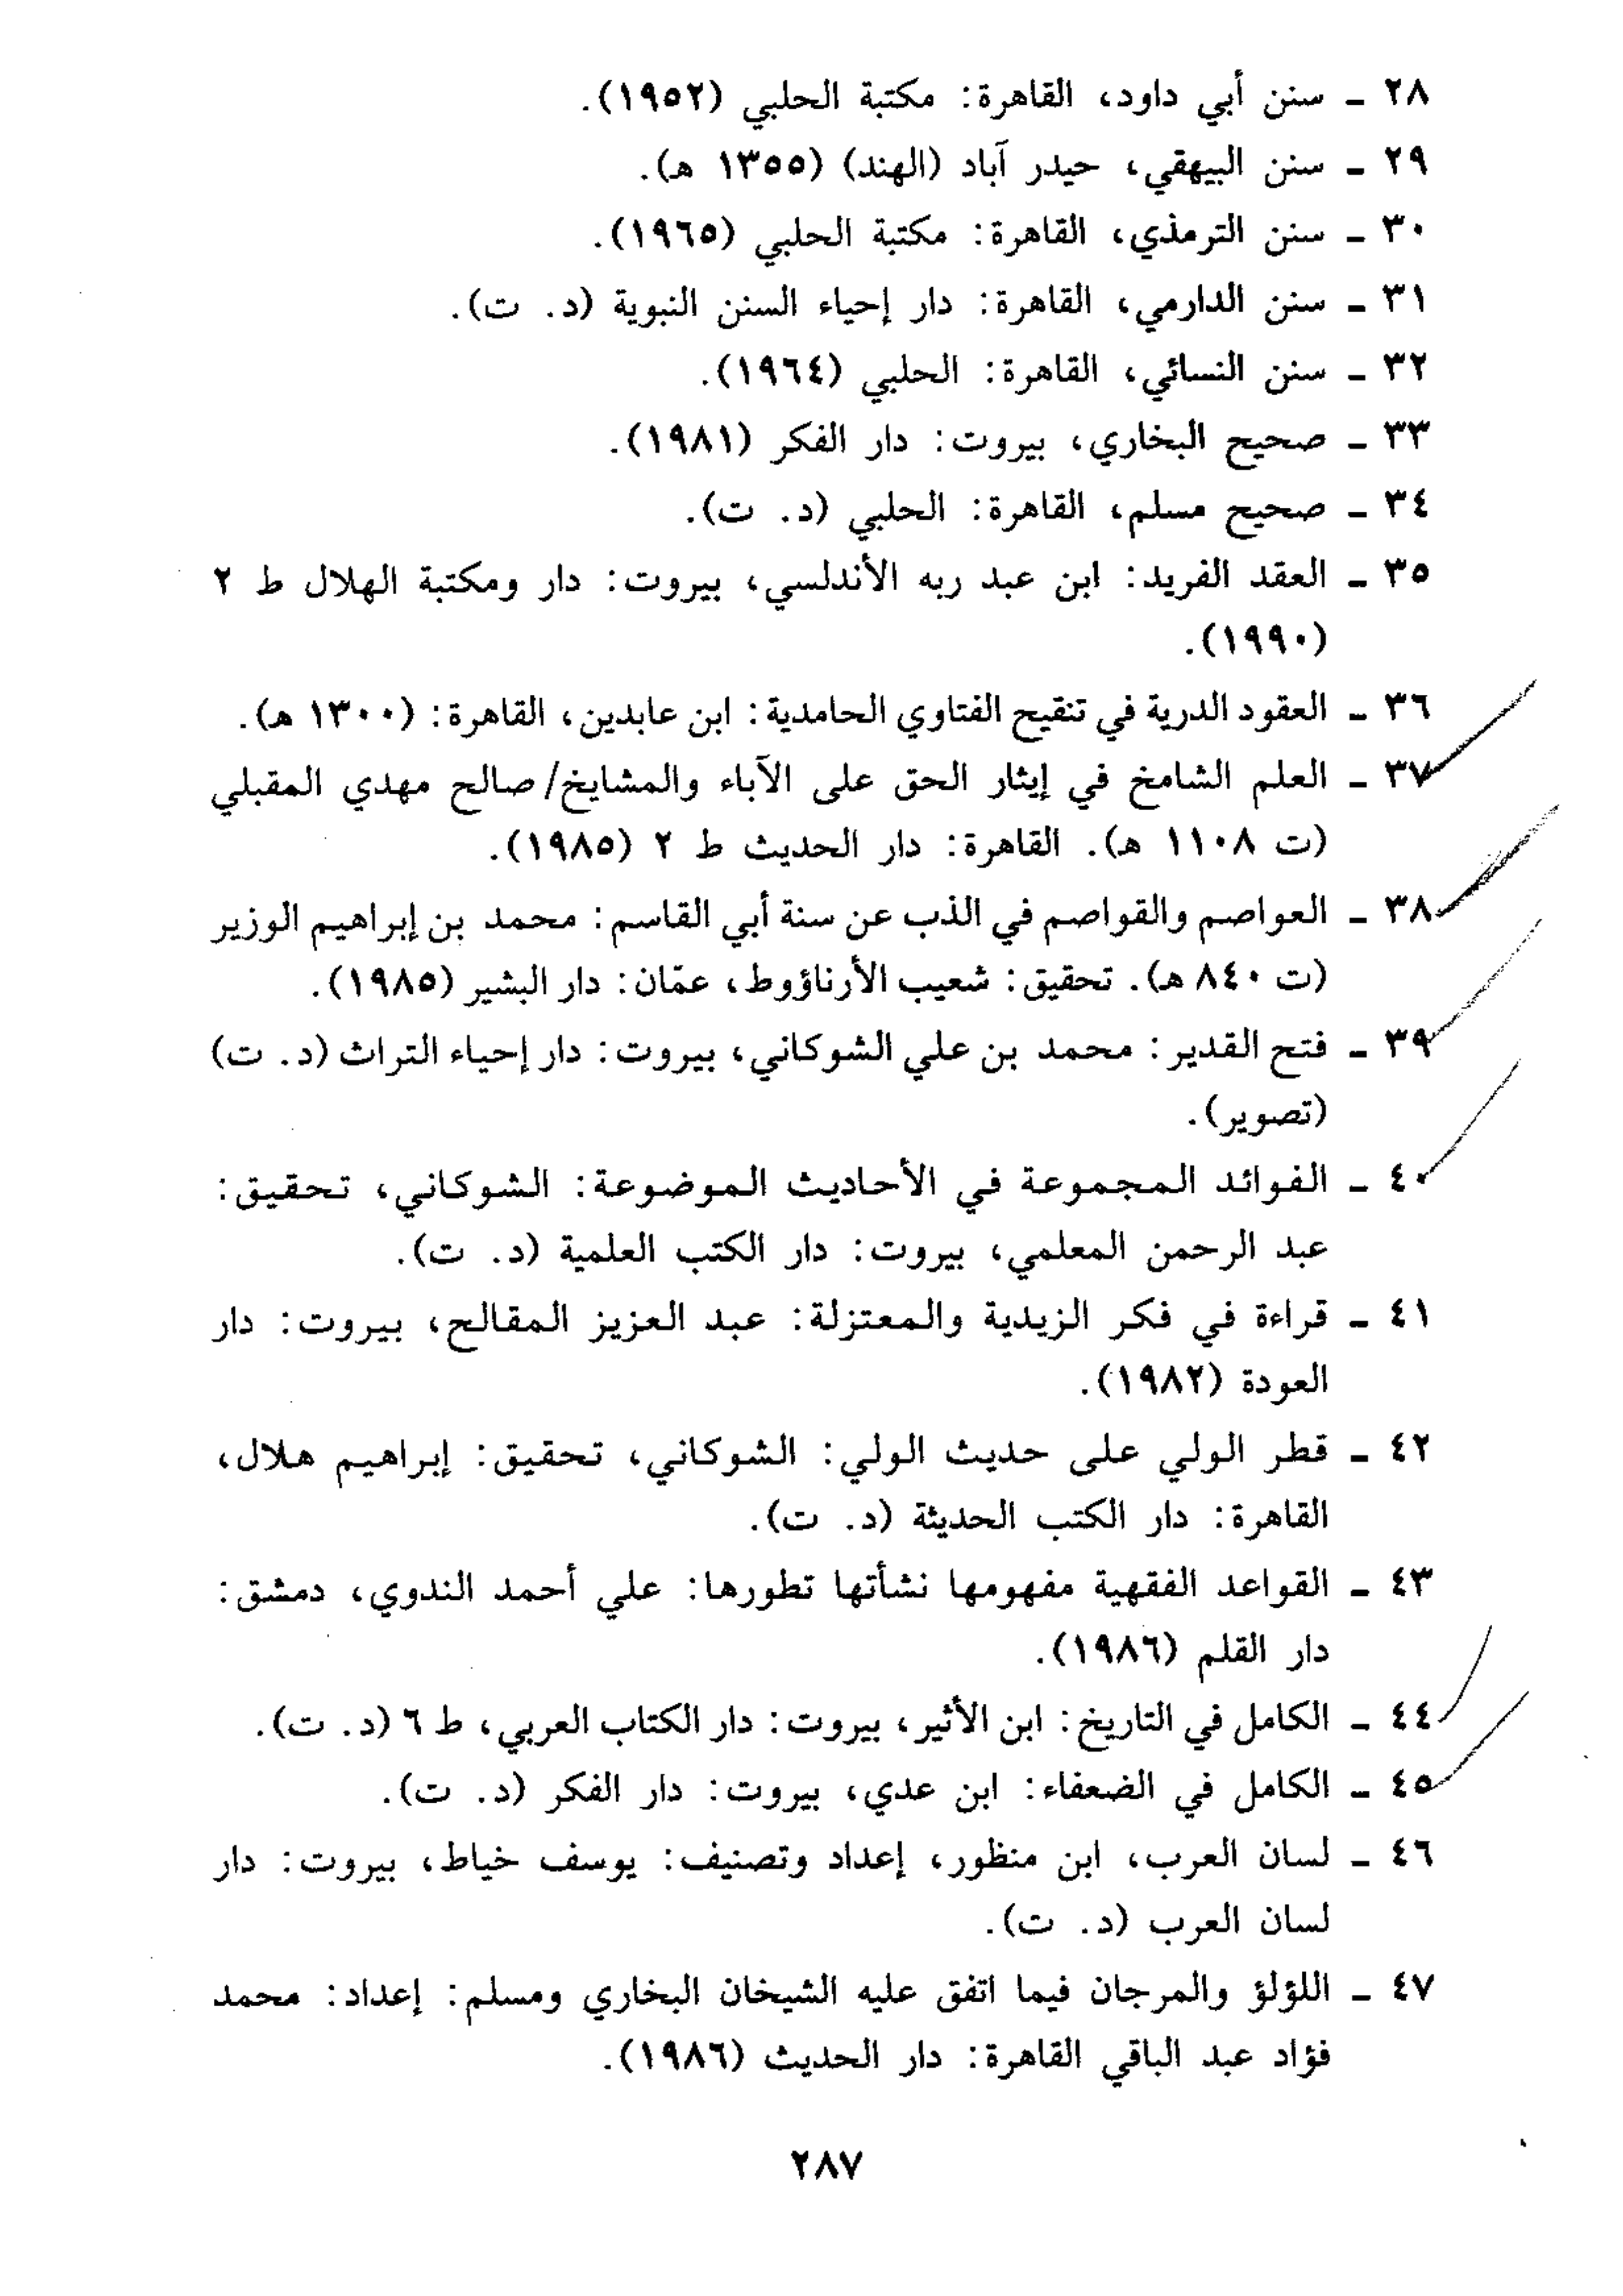 ٢٨ - سنن أبي داود، القاهرة: مكتبة الحلبي (١٩٥٢).
٢٩ - سنن البيهقي، حيدر آباد (الهند) (١٣٥٥ هـ).
٣٠ - سنن الترمذي، القاهرة: مكتبة الحلبي (١٩٦٥).
٣١ - سنن الدارمي، القاهرة: دار إحياء السنن النبوية (د. ت).
٣٢ - سنن النسائي، القاهرة: الحلبي (١٩٦٤).
٣٣ - صحيح البخاري، بيروت: دار الفكر (١٩٨١).
٣٤ - صحيح مسلم، القاهرة: الحلبي (د. ت).
٣٥ - العقد الفريد: ابن عبد ربه الأندلسي، بيروت: دار ومكتبة الهلال ط ٢
(١٩٩٠).
٣٦ - العقود الدرية في تنقيح الفتاوي الحامدية: ابن عابدين، القاهرة: (١٣٠٠ هـ).
٣٧ - العلم الشامخ في إيثار الحق على الآباء والمشايخ/ صالح مهدي المقبلي
(ت ١١٠٨ هـ). القاهرة: دار الحديث ط ٢ (١٩٨٥).
٣٨ - العواصم والقواصم في الذب عن سنة أبي القاسم: محمد بن إبراهيم الوزير
(ت ٨٤٠ هـ). تحقيق: شعيب الأرناؤوط، عمّان: دار البشير (١٩٨٥).
٣٩ - فتح القدير: محمد بن علي الشوكاني، بيروت: دار إحياء التراث (د. ت)
(تصوير).
٤٠ - الفوائد المجموعة في الأحاديث الموضوعة: الشوكاني، تحقيق:
عبد الرحمن المعلمي، بيروت: دار الكتب العلمية (د. ت).
٤١ - قراءة في فكر الزيدية والمعتزلة: عبد العزيز المقالح، بيروت: دار
العودة (١٩٨٢).
٤٢ - قطر الولي على حديث الولي: الشوكاني، تحقيق: إبراهيم هلال،
القاهرة: دار الكتب الحديثة (د. ت).
٤٣ - القواعد الفقهية مفهومها نشأتها تطورها: علي أحمد الندوي، دمشق:
دار القلم (١٩٨٦).
٤٤ - الكامل في التاريخ: ابن الأثير، بيروت: دار الكتاب العربي، ط ٦ (د. ت).
٤٥ - الكامل في الضعفاء: ابن عدي، بيروت: دار الفكر (د. ت).
٤٦ - لسان العرب، ابن منظور، إعداد وتصنيف: يوسف خياط، بيروت: دار
لسان العرب (د. ت).
٤٧ - اللؤلؤ والمرجان فيما اتفق عليه الشيخان البخاري ومسلم: إعداد: محمد
فؤاد عبد الباقي القاهرة: دار الحديث (١٩٨٦).
٢٨٧